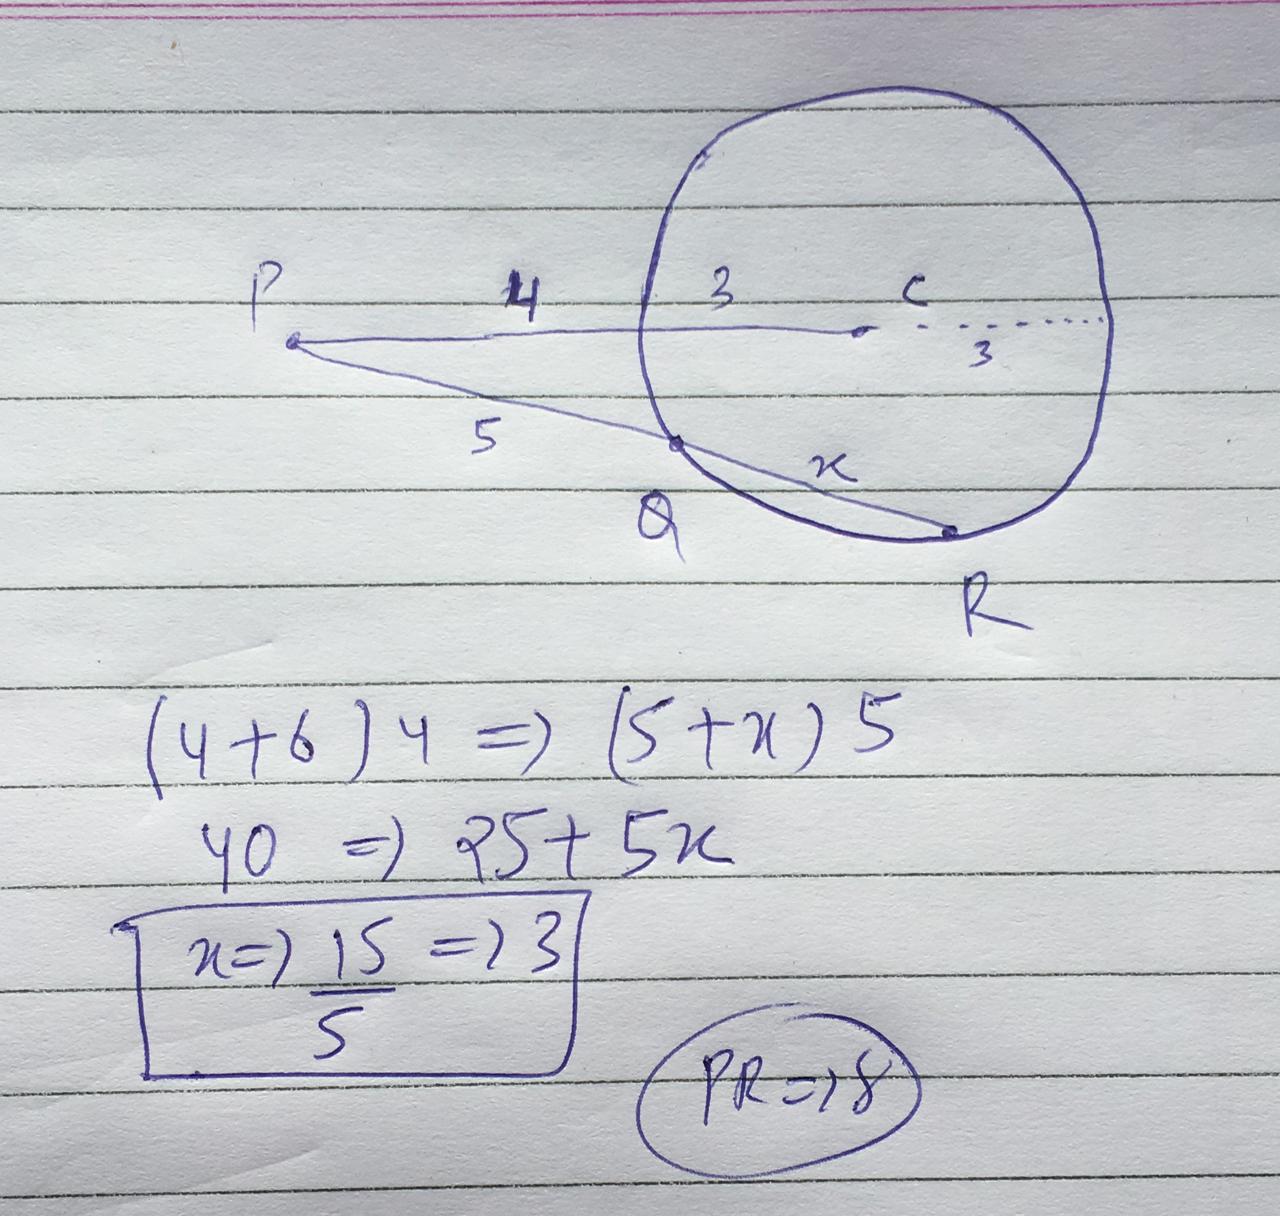 P 4 3 C
3
5 x
Q
R
(4+6)4 => (5+x)5
40 => 25+5x
x=> 15/5 => 3
PR=>8